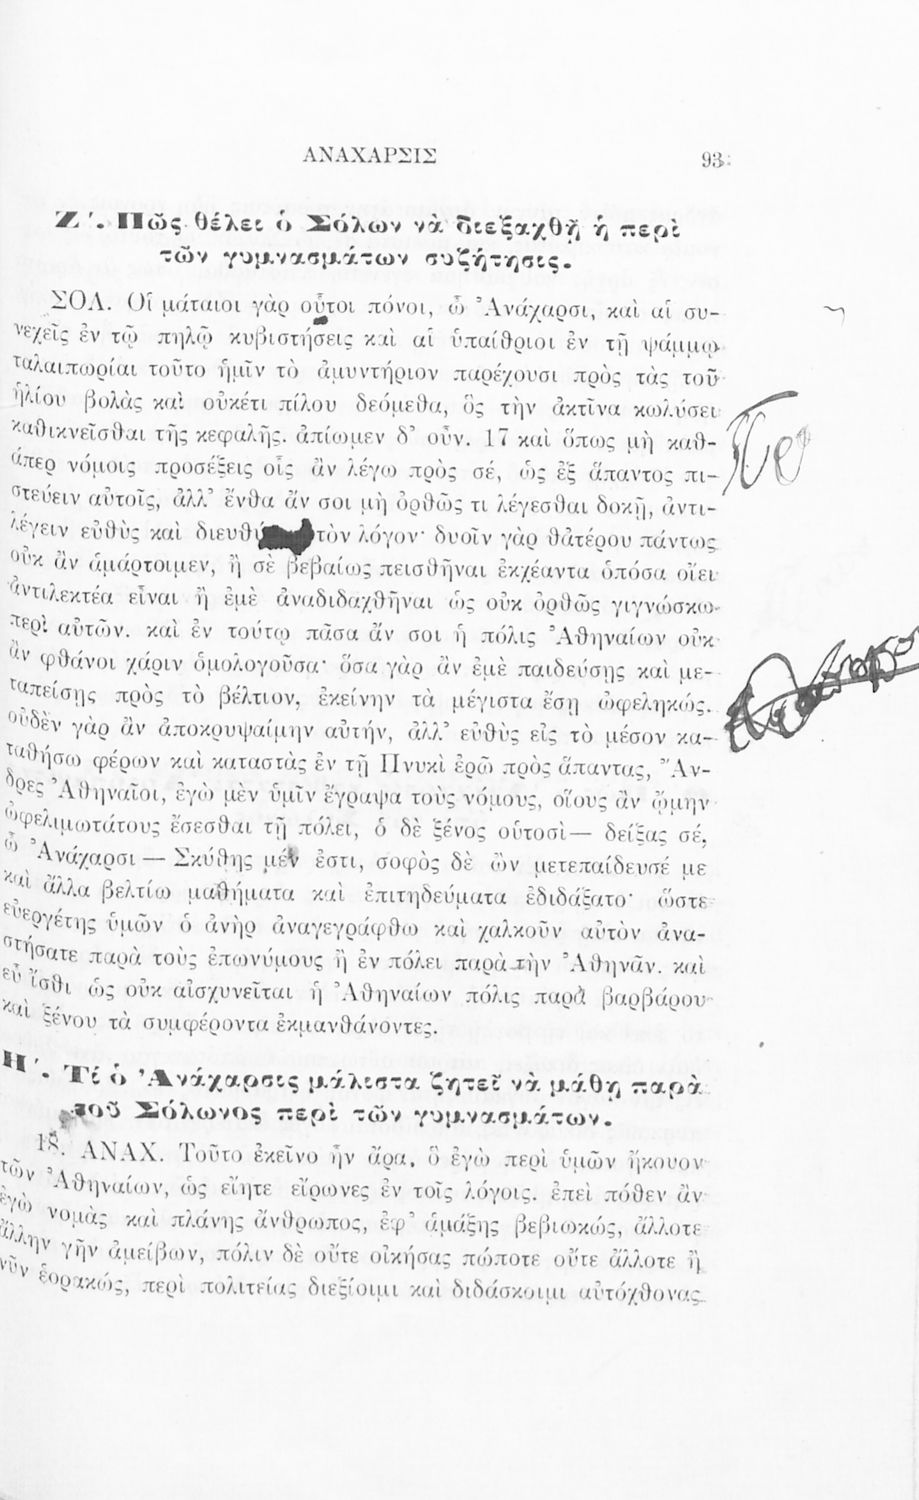 ΑΝΑΧΑΡΣΙΣ 93
Ζ΄. Πῶς θέλει ὁ Σόλων νὰ διεξαχθῇ ἡ περὶ
τῶν γυμνασμάτων συζήτησις.
ΣΟΛ. Οἱ μάταιοι γὰρ οὗτοι πόνοι, ὦ Ἀνάχαρσι, καὶ αἱ συ-
νεχεῖς ἐν τῷ πηλῷ κυβιστήσεις καὶ αἱ ὑπαίθριοι ἐν τῇ ψάμμῳ
ταλαιπωρίαι τοῦτο ἡμῖν τὸ ἀμυντήριον παρέχουσι πρὸς τὰς τοῦ
ἡλίου βολὰς καὶ οὐκέτι πίλου δεόμεθα, ὃς τὴν ἀκτῖνα κωλύσει
καθικνεῖσθαι τῆς κεφαλῆς. ἀπίωμεν δ' οὖν. 17 καὶ ὅπως μὴ καθ-
άπερ νόμοις προσέξεις οἷς ἂν λέγω πρὸς σέ, ὡς ἐξ ἅπαντος πι-
στεύειν αὐτοῖς, ἀλλ' ἔνθα ἄν σοι μὴ ὀρθῶς τι λέγεσθαι δοκῇ, ἀντι-
λέγειν εὐθὺς καὶ διευθύ τὸν λόγον· δυοῖν γὰρ θἀτέρου πάντως
οὐκ ἂν ἁμάρτοιμεν, ἢ σὲ βεβαίως πεισθῆναι ἐκχέαντα ὁπόσα οἴει
ἀντιλεκτέα εἶναι ἢ ἐμὲ ἀναδιδαχθῆναι ὡς οὐκ ὀρθῶς γιγνώσκω
περὶ αὐτῶν. καὶ ἐν τούτῳ πᾶσα ἄν σοι ἡ πόλις Ἀθηναίων οὐκ
ἂν φθάνοι χάριν ὁμολογοῦσα· ὅσα γὰρ ἂν ἐμὲ παιδεύσῃς καὶ με-
ταπείσῃς πρὸς τὸ βέλτιον, ἐκείνην τὰ μέγιστα ἔσῃ ὠφεληκώς.
οὐδὲν γὰρ ἂν ἀποκρυψαίμην αὐτήν, ἀλλ' εὐθὺς εἰς τὸ μέσον κα-
ταθήσω φέρων καὶ καταστὰς ἐν τῇ Πνυκὶ ἐρῶ πρὸς ἅπαντας, Ἄν-
δρες Ἀθηναῖοι, ἐγὼ μὲν ὑμῖν ἔγραψα τοὺς νόμους, οἵους ἂν ᾤμην
ὠφελιμωτάτους ἔσεσθαι τῇ πόλει, ὁ δὲ ξένος οὑτοσὶ — δείξας σέ,
ὦ Ἀνάχαρσι — Σκύθης μέν ἐστι, σοφὸς δὲ ὢν μετεπαίδευσέ με
καὶ ἄλλα βελτίω μαθήματα καὶ ἐπιτηδεύματα ἐδιδάξατο· ὥστε
εὐεργέτης ὑμῶν ὁ ἀνὴρ ἀναγεγράφθω καὶ χαλκοῦν αὐτὸν ἀνα-
στήσατε παρὰ τοὺς ἐπωνύμους ἢ ἐν πόλει παρὰ τὴν Ἀθηνᾶν. καὶ
εὖ ἴσθι ὡς οὐκ αἰσχυνεῖται ἡ Ἀθηναίων πόλις παρὰ βαρβάρου
καὶ ξένου τὰ συμφέροντα ἐκμανθάνοντες.
Η΄. Τί ὁ Ἀνάχαρσις μάλιστα ζητεῖ νὰ μάθῃ παρὰ
τοῦ Σόλωνος περὶ τῶν γυμνασμάτων.
18. ΑΝΑΧ. Τοῦτο ἐκεῖνο ἦν ἄρα, ὃ ἐγὼ περὶ ὑμῶν ἤκουον
τῶν Ἀθηναίων, ὡς εἴητε εἴρωνες ἐν τοῖς λόγοις. ἐπεὶ πόθεν ἂν
ἐγὼ νομὰς καὶ πλάνης ἄνθρωπος, ἐφ' ἁμάξης βεβιωκώς, ἄλλοτε
ἄλλην γῆν ἀμείβων, πόλιν δὲ οὔτε οἰκήσας πώποτε οὔτε ἄλλοτε ἢ
νῦν ἑορακώς, περὶ πολιτείας διεξίοιμι καὶ διδάσκοιμι αὐτόχθονας